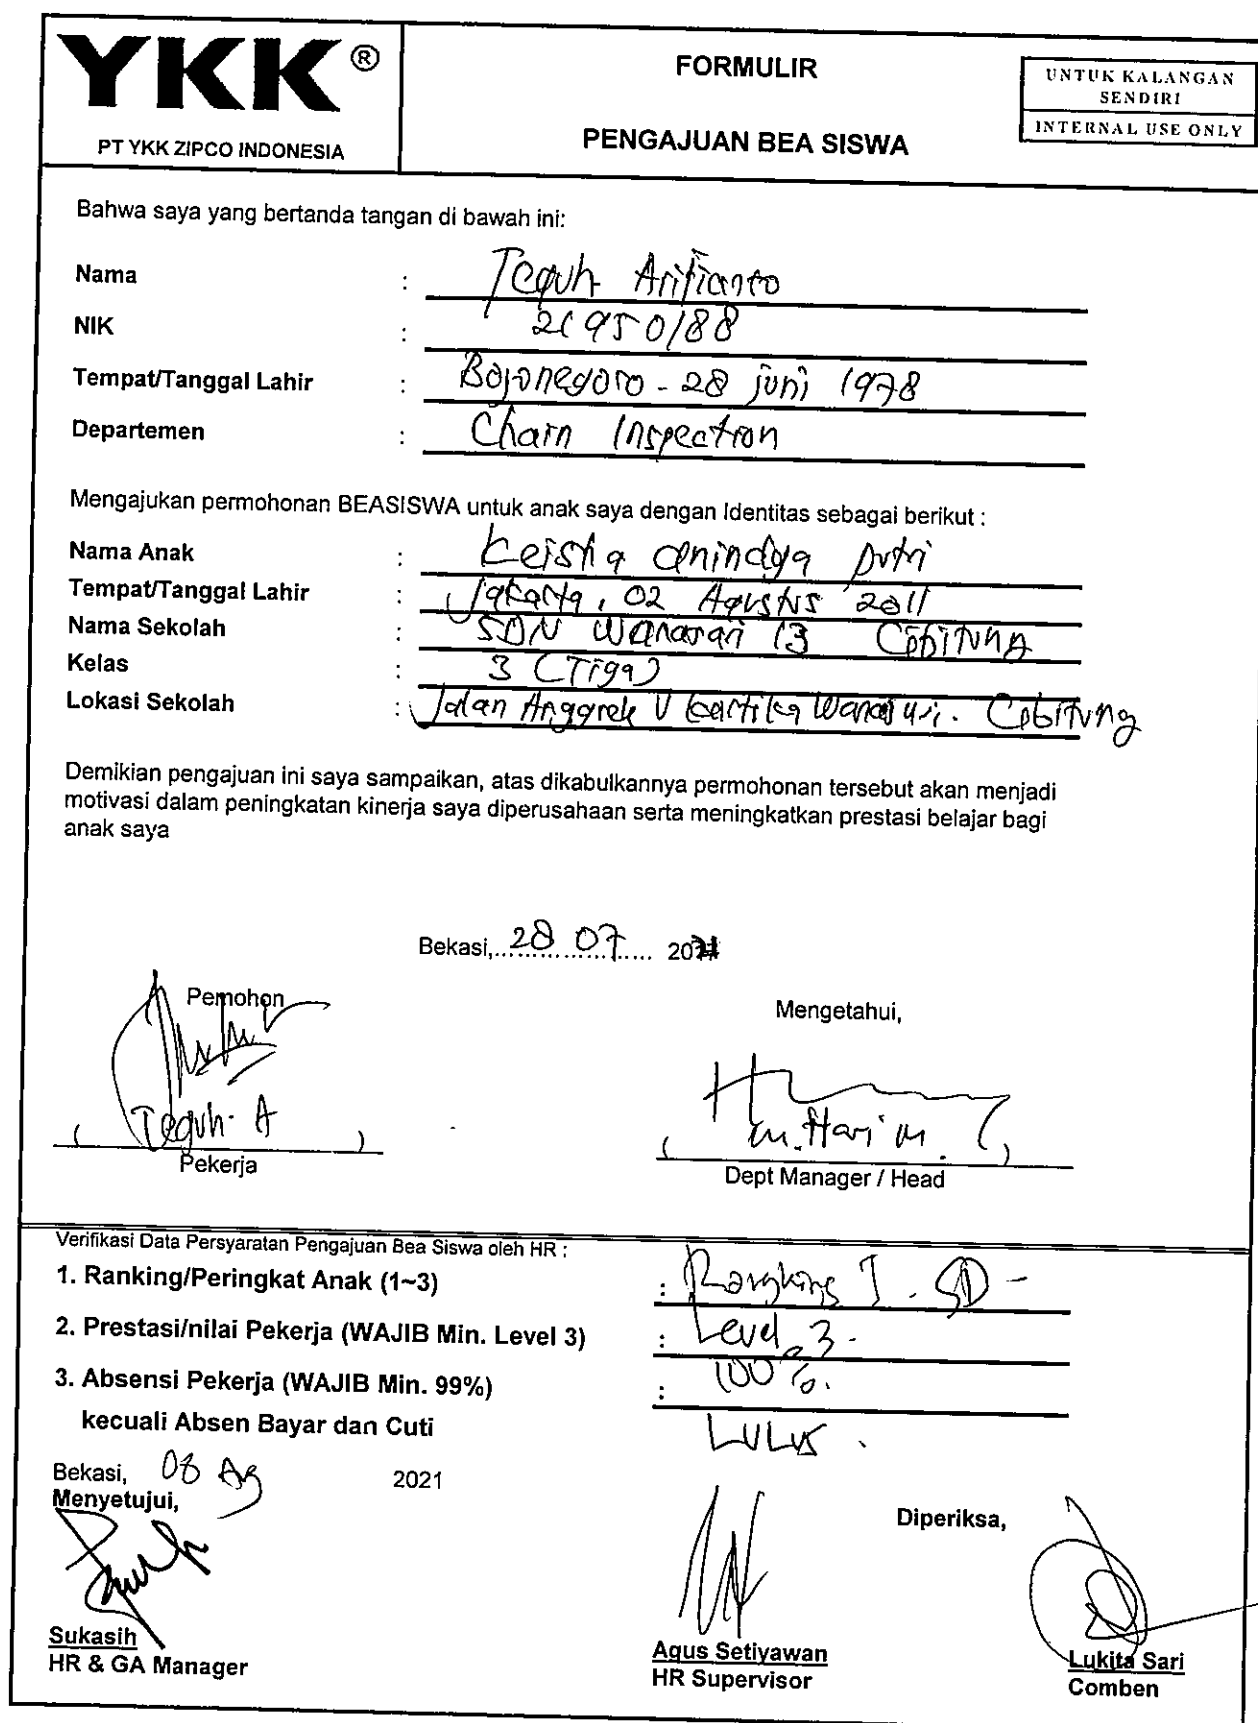 YKK®
PT YKK ZIPCO INDONESIA
FORMULIR
PENGAJUAN BEA SISWA
UNTUK KALANGAN
SENDIRI
INTERNAL USE ONLY
Bahwa saya yang bertanda tangan di bawah ini:
Nama : Teguh Arifianto
NIK : 21950/88
Tempat/Tanggal Lahir : Bojonegoro - 28 juni 1978
Departemen : Chain Inspection
Mengajukan permohonan BEASISWA untuk anak saya dengan Identitas sebagai berikut :
Nama Anak : Keisha anindya putri
Tempat/Tanggal Lahir : Jakarta, 02 Agustus 2011
Nama Sekolah : SDN Wanasari 13 Cibitung
Kelas : 3 (Tiga)
Lokasi Sekolah : Jalan Anggrek V kartika Wanasari. Cibitung
Demikian pengajuan ini saya sampaikan, atas dikabulkannya permohonan tersebut akan menjadi
motivasi dalam peningkatan kinerja saya diperusahaan serta meningkatkan prestasi belajar bagi
anak saya
Bekasi, 28 07 2021
Pemohon
Mengetahui,
( Teguh. A )
Pekerja
( M. Hari M. )
Dept Manager / Head
Verifikasi Data Persyaratan Pengajuan Bea Siswa oleh HR :
1. Ranking/Peringkat Anak (1~3) : Rangking I. SD -
2. Prestasi/nilai Pekerja (WAJIB Min. Level 3) : Level 3.
3. Absensi Pekerja (WAJIB Min. 99%) : 100%.
kecuali Absen Bayar dan Cuti
LULUS.
Bekasi, 08 Ag 2021
Menyetujui,
Diperiksa,
Sukasih
HR & GA Manager
Agus Setiyawan
HR Supervisor
Lukita Sari
Comben